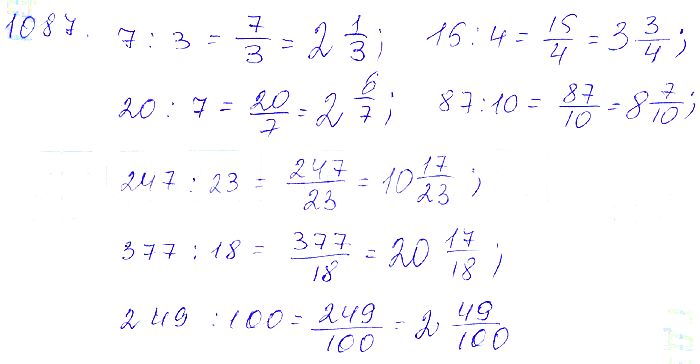 1087. 7 : 3 = 7/3 = 2 1/3; 15 : 4 = 15/4 = 3 3/4;
20 : 7 = 20/7 = 2 6/7; 87 : 10 = 87/10 = 8 7/10;
247 : 23 = 247/23 = 10 17/23;
377 : 18 = 377/18 = 20 17/18;
249 : 100 = 249/100 = 2 49/100